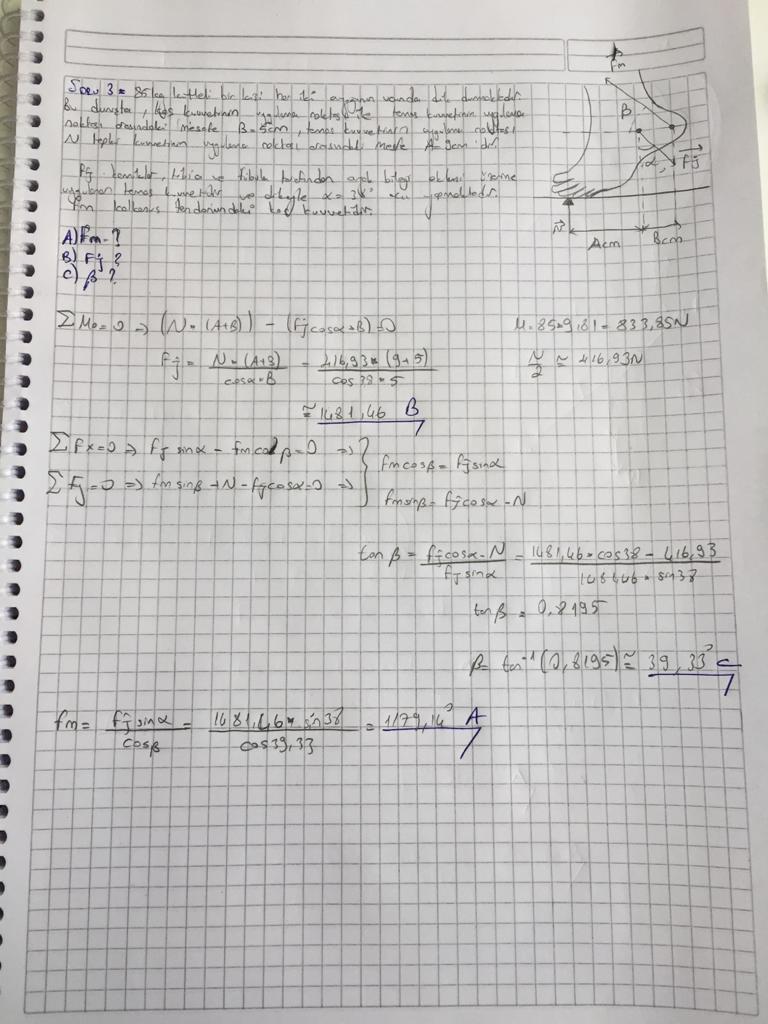 Soru 3 = 85 kg kütleli bir kişi her iki ayağının ucunda dik durmaktadır.
Bu duruşta, kas kuvvetinin uygulama noktası ile temas kuvvetinin uygulama
noktası arasındaki mesafe B=5cm, temas kuvvetinin uygulama noktası
N tepki kuvvetinin uygulama noktası arasındaki mesafe A=9cm'dir.
Fj tibia ve fibula tarafından ayak bileği eklemi üzerine
uygulanan temas kuvvetidir ve dikeyle α=38° açı yapmaktadır.
Fm tendonundaki kas kuvvetidir.
A) Fm=?
B) Fj ?
C) β ?
Fm
β
α
Fj
N
Acm
Bcm
ΣMo=0 => (N·(A+B)) - (Fjcosα·B)=0
85·9,81=833,85N
Fj = N·(A+B) / cosα·B = 416,93·(9+5) / cos38·5
N/2 ≅ 416,93N
≅ 1481,46 B
ΣFx=0 => Fj sinα - fmcosβ=0 =>
fmcosβ = Fjsinα
ΣFj=0 => fmsinβ+N-Fjcosα=0 =>
fmsinβ=Fjcosα-N
tanβ = Fjcosα-N / Fjsinα = 1481,46·cos38 - 416,93 / 1481,46·sin38
tanβ = 0,8195
β= tan⁻¹(0,8195) ≅ 39,33° C
fm = Fjsinα / cosβ = 1481,46·sin38 / cos39,33 = 1179,14° A